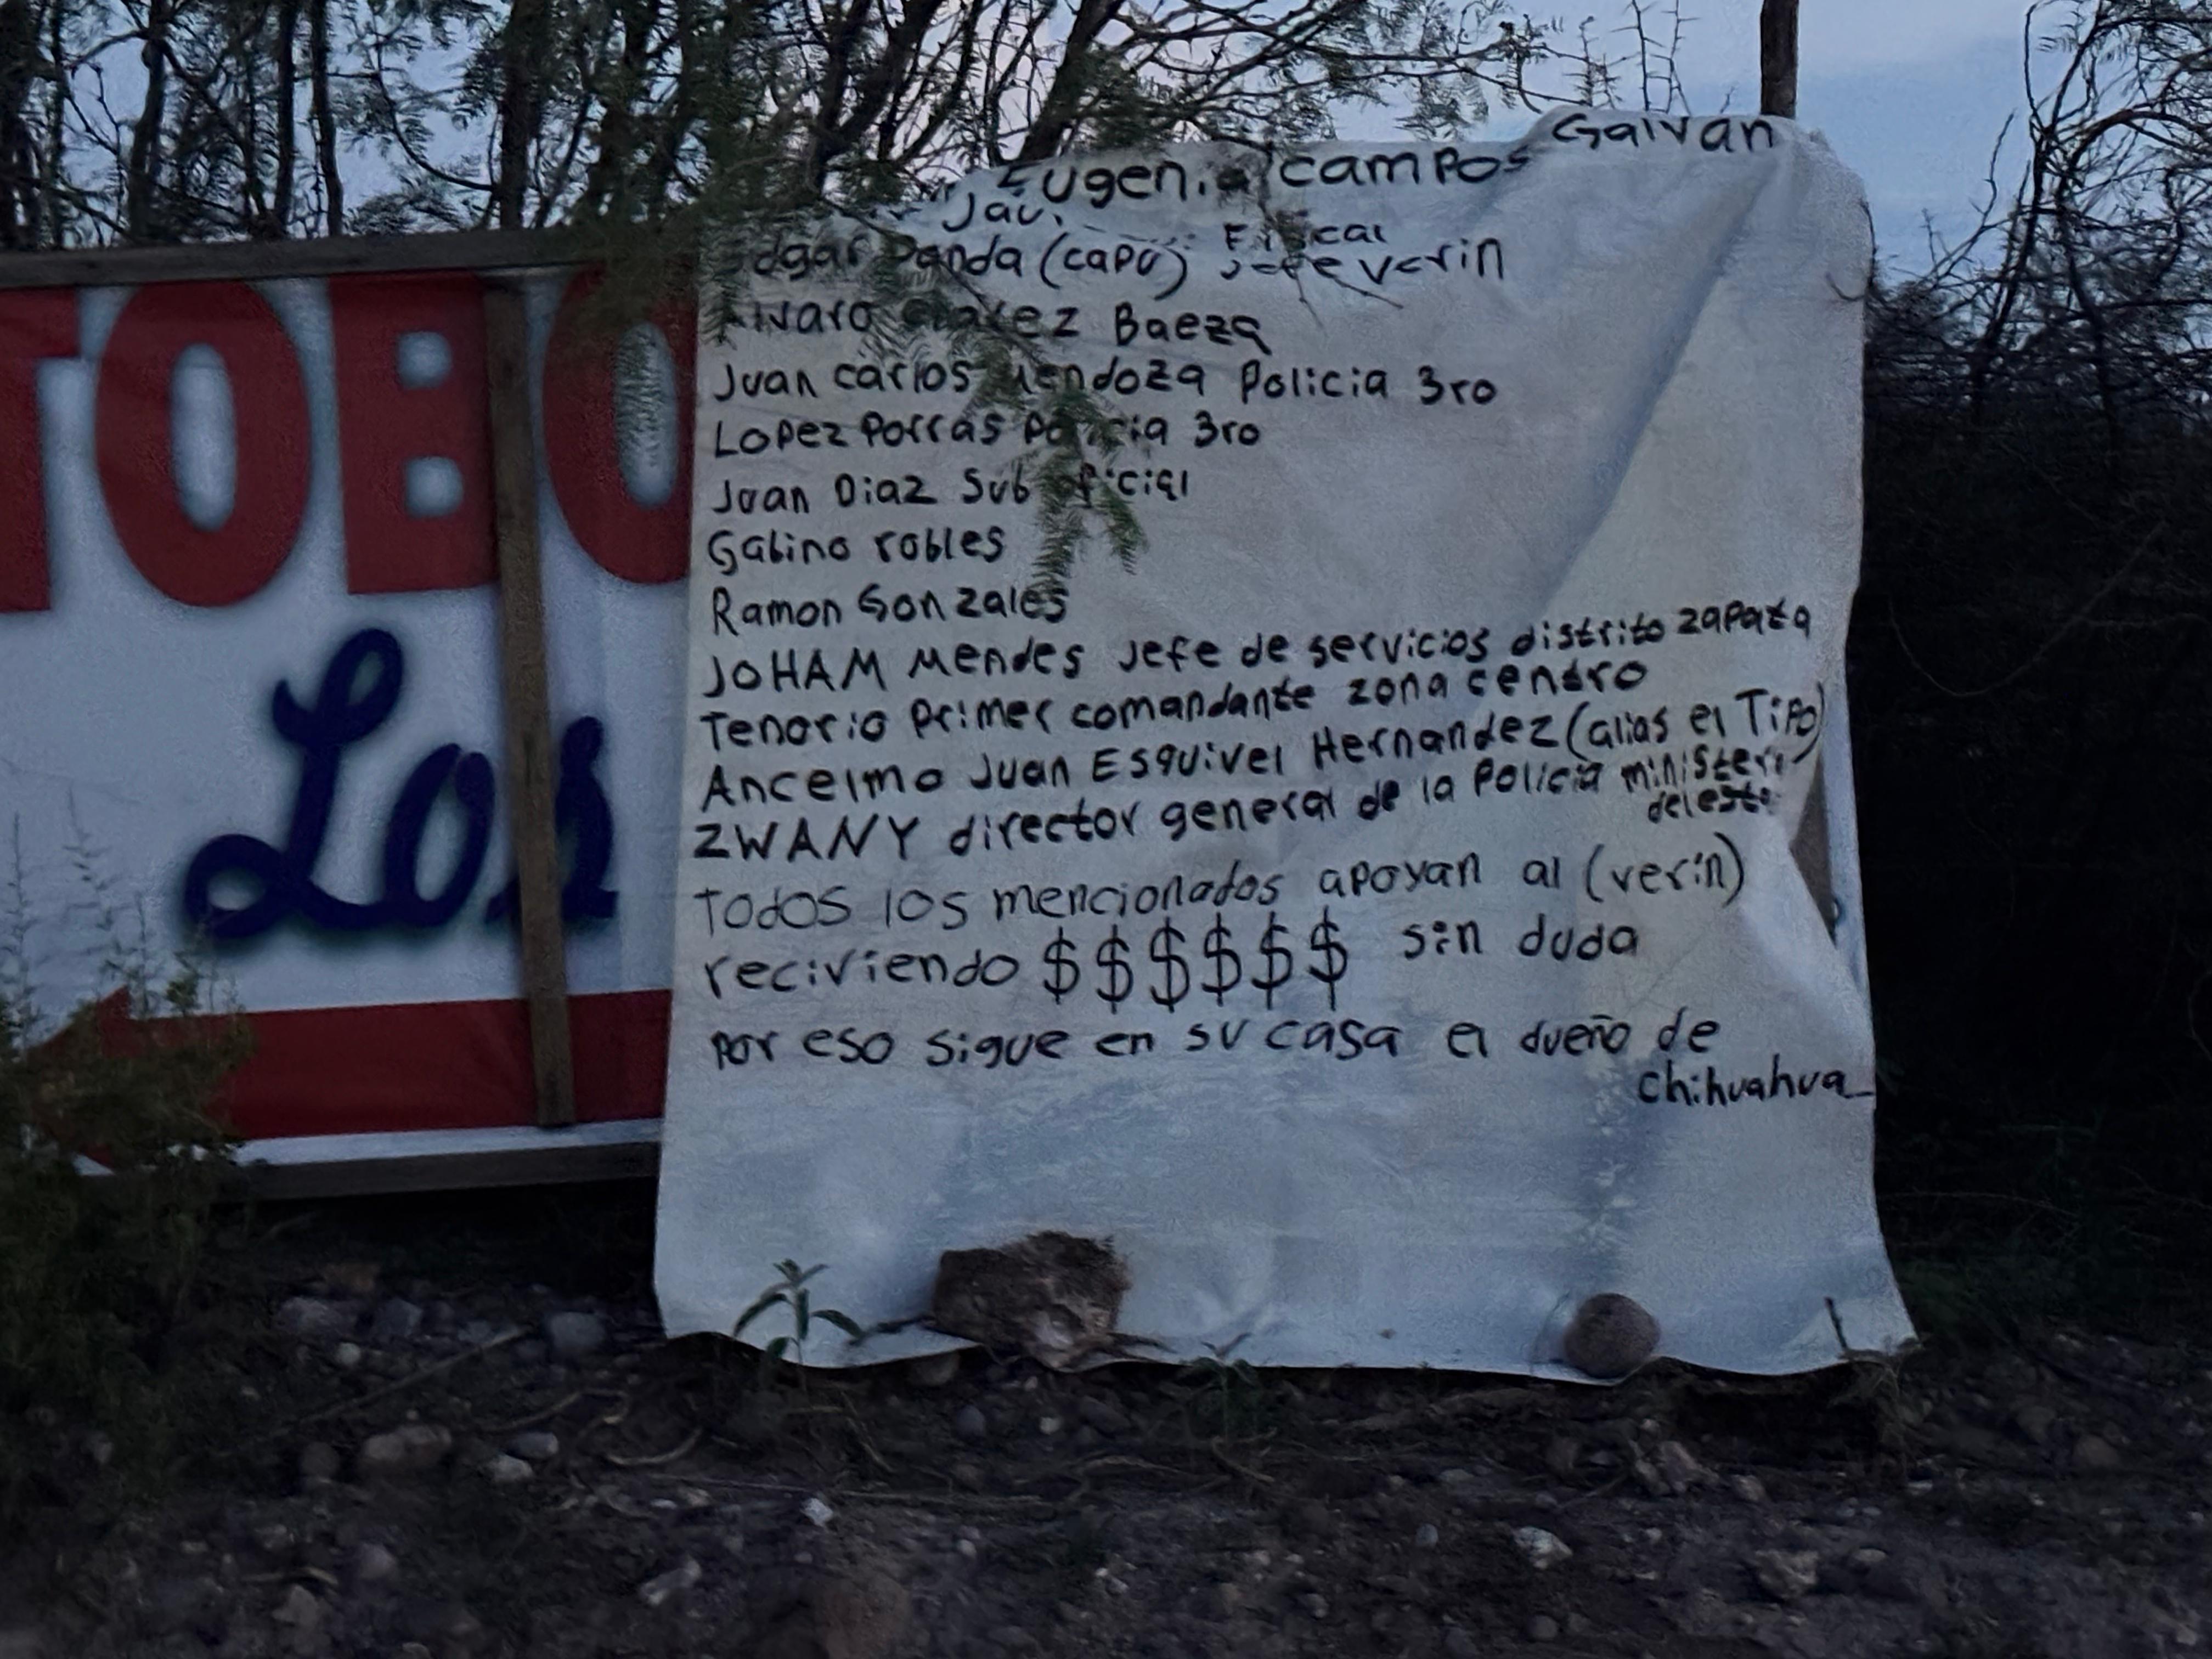 TOBO
Los
Eugenia campos Galvan
Fiscal
Edgar Panda (capo) Jefe verin
Alvaro Baeza
Juan carlos Mendoza Policia 3ro
Lopez Porras Policia 3ro
Juan Diaz Sub oficial
Gabino robles
Ramon Gonzales
JOHAM Mendes Jefe de servicios distrito zapata
Tenorio Primer comandante zona centro
Ancelmo Juan Esquivel Hernandez (alias el Tipo)
ZWANY director general de la Policia
Todos los mencionados apoyan al (verin)
reciviendo $ $ $ $ $ $ sin duda
por eso sigue en su casa el dueño de
chihuahua